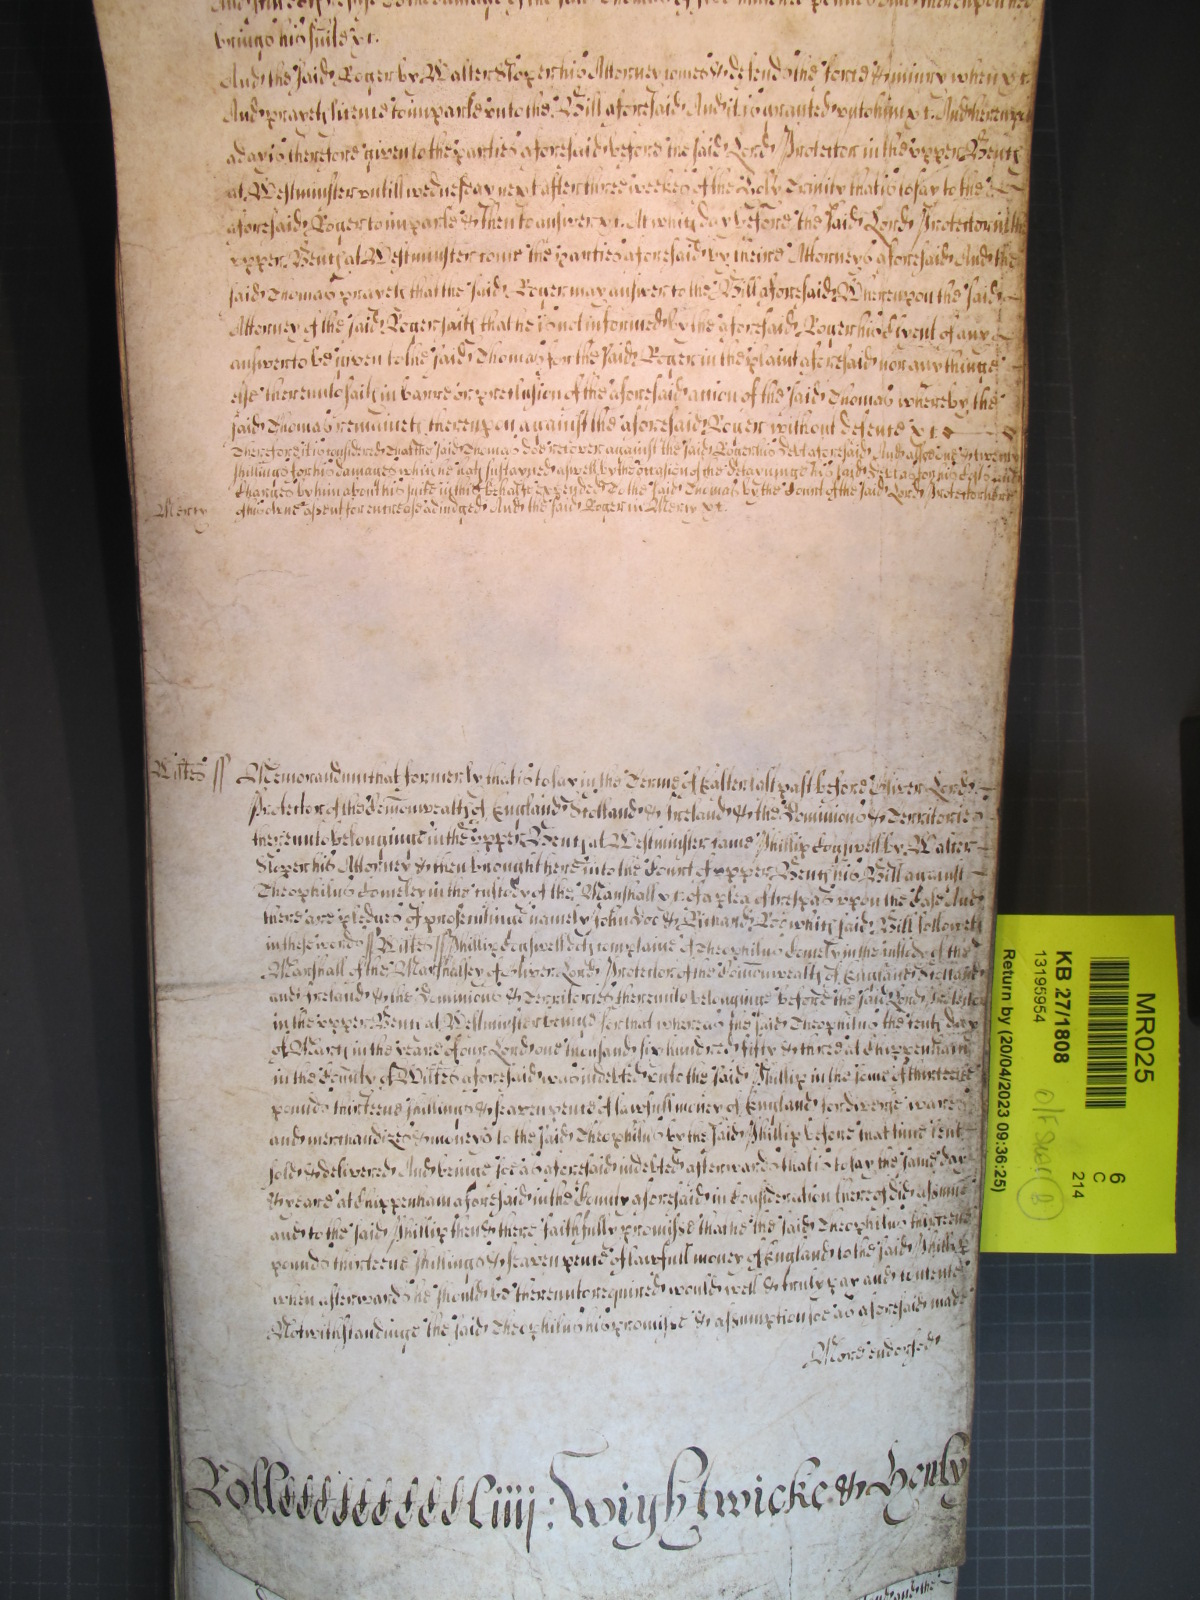 brings his suite &c.
And the said Roger by Walter Sloper his Attorney comes & defends the force & iniury when &c.
And prayeth licence to imparle vnto the Bill aforesaid And it is graunted vnto him &c. And therevpon
a day is therefore given to the parties aforesaid before the said Lord Protector in the vpper Bench
at Westminster vntill wednesday next after three weekes of the Holy Trinity that is to say to the
aforesaid Roger to imparle & then to answer &c. At which day before the said Lord Protector in the
vpper Bench at Westminster come the parties aforesaid by theire Attorneys aforesaid And the
said Thomas prayeth that the said Roger may answer to the Bill aforesaid Wherevpon the said
Attorney of the said Roger saith that he is not informed by the aforesaid Roger his Client of any
answer to be given to the said Thomas for the said Roger in the plaint aforesaid nor any thinge
else therevnto saith in barre or preclusion of the aforesaid accion of the said Thomas whereby the
said Thomas remaineth therevpon against the aforesaid Roger without defence &c
Therefore it is considered That the said Thomas doe recover against the said Roger his Debt aforesaid And alsoe & twenty
shillings for his damages which he hath sustayned aswell by the occasion of the detayninge his said Debt as for his costs and
Charges by him about his suite in this behalfe expended To the said Thomas by the Court of the said Lord Protector here
Mercy of his owne assent for encrease adiudged And the said Roger in Mercy &c.
Wiltes ss Memorandum that formerly that is to say in the Terme of Easter last past before Oliver Lord
Protector of the Comonwealth of England Scotland & Ireland & the Dominions & Territories
therevnto belonginge in the vpper Bench at Westminster came Phillip Cogswell by Walter
Sloper his Attorney & then brought here into the Court of vpper Bench his Bill against
Theophilus Comeley in the custody of the Marshall &c. of a plea of trespas vpon the Case And
there are pledges of prosecutinge namely John Doe & Richard Roe which said Bill followeth
in these words ss Wiltes ss Phillip Cogswell complaines of Theophilus Comely in the custody of the
Marshall of the Marshalsey of Oliver Lord Protector of the Comonwealth of England Scotland
and Ireland & the Dominions & Territories therevnto belonginge before the said Lord Protector
in the vpper Bench at Westminster beinge for that whereas the said Theophilus the tenth day
of March in the yeare of our Lord one thousand six hundred fifty & three at Chippenham
in the County of Wiltes aforesaid was indebted vnto the said Phillip in the some of thirteene
pounds thirteene shillings & seaven pence of lawfull money of England for diverse wares
and merchandizes & moneys to the said Theophilus by the said Phillip before that time lent
sold & delivered And beinge soe as aforesaid indebted afterwards that is to say the same day
& yeare at Chippenham aforesaid in the County aforesaid in Consideration thereof did assume
and to the said Phillip then & there faithfully promisse that he the said Theophilus thirteene
pounds thirteene shillings & seaven pence of lawfull money of England to the said Phillip
when afterwards he should be therevnto required would well & truly pay and contente
Notwithstandinge the said Theophilus his promisse & assumption soe as aforesaid made
More endorsed
Wightwicke & Henly
MR025
KB 27/1808
13195954
Return by (20/04/2023 09:36:25)
6
C
214